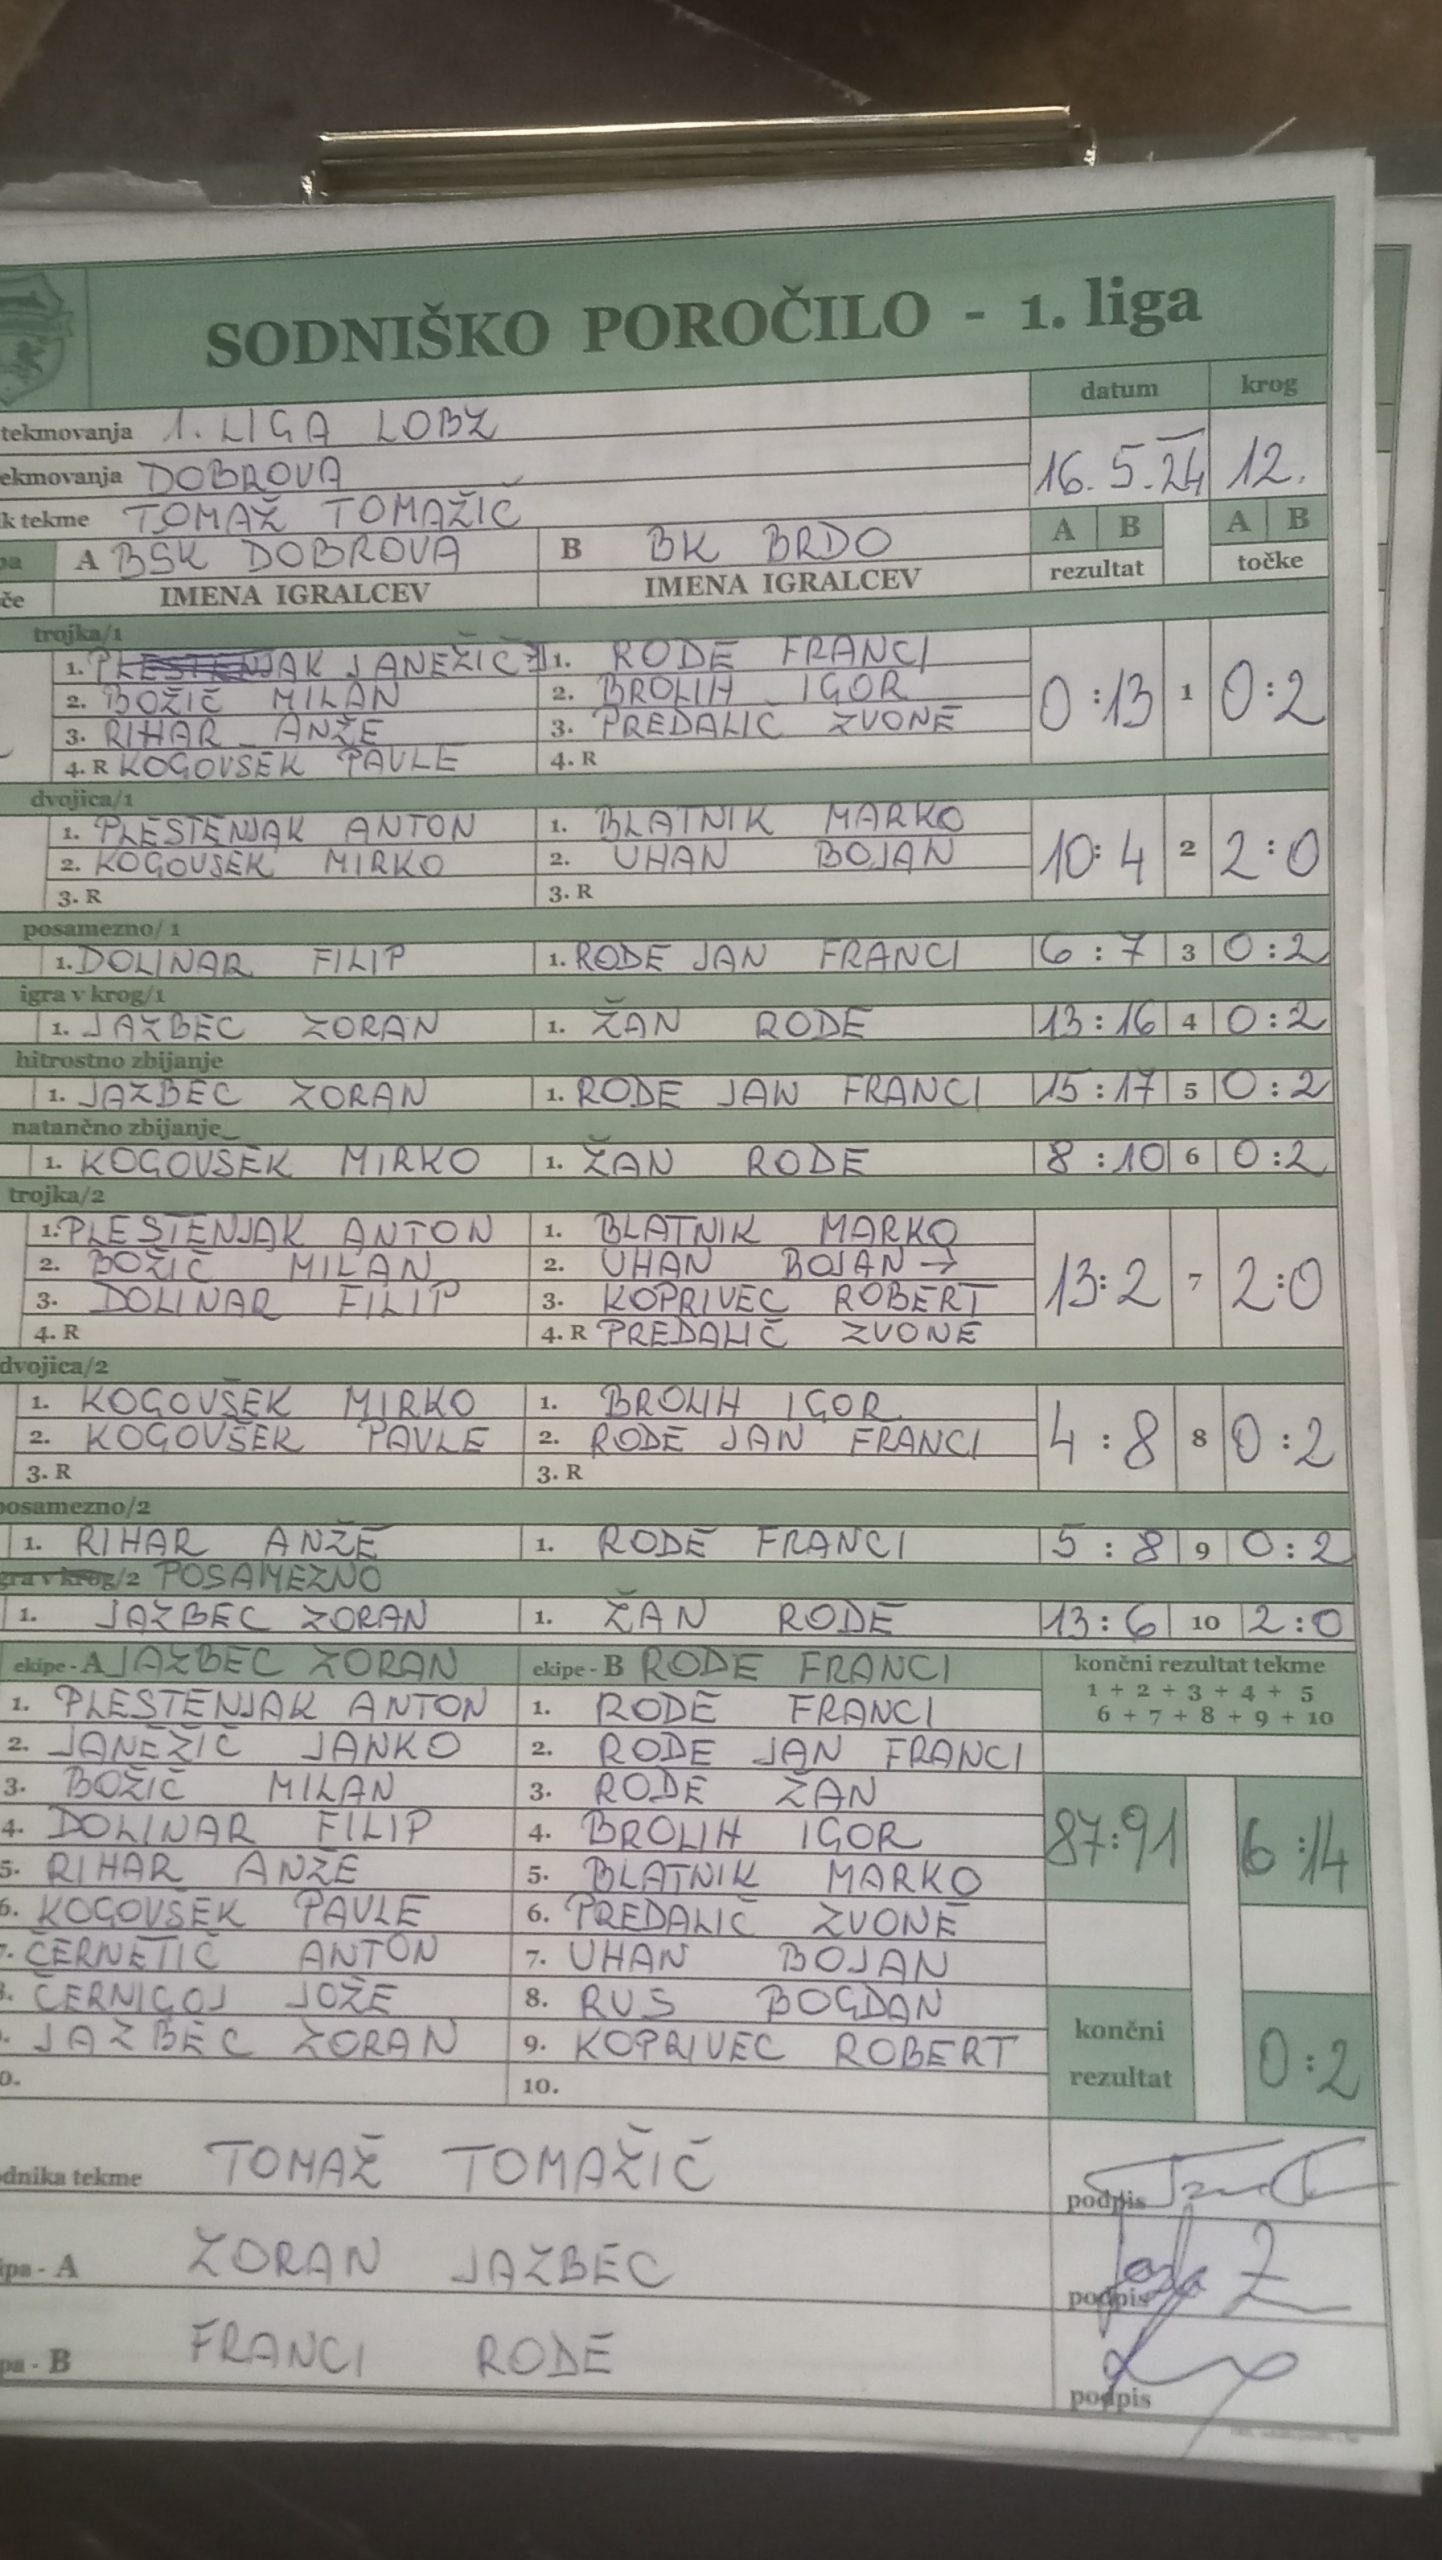 SODNIŠKO POROČILO - 1. liga
datum krog
tekmovanja 1. LIGA LOBZ
ekmovanja DOBROVA 16. 5. 24 12.
k tekme TOMAŽ TOMAŽIČ
pa A BSK DOBROVA B BK BRDO A B A B
če IMENA IGRALCEV IMENA IGRALCEV rezultat točke
trojka/1
1. JANEŽIČ 1. RODE FRANCI
2. BOŽIČ MILAN 2. BROLIH IGOR 0:13 1 0:2
3. RIHAR ANŽE 3. PREDALIČ ZVONE
4. R KOGOVŠEK PAVLE 4. R
dvojica/1
1. PLESTENJAK ANTON 1. BLATNIK MARKO
2. KOGOVŠEK MIRKO 2. UHAN BOJAN 10:4 2 2:0
3. R 3. R
posamezno/ 1
1. DOLINAR FILIP 1. RODE JAN FRANCI 6:7 3 0:2
igra v krog/1
1. JAZBEC ZORAN 1. ŽAN RODE 13:16 4 0:2
hitrostno zbijanje
1. JAZBEC ZORAN 1. RODE JAN FRANCI 15:17 5 0:2
natančno zbijanje
1. KOGOVŠEK MIRKO 1. ŽAN RODE 8:10 6 0:2
trojka/2
1. PLESTENJAK ANTON 1. BLATNIK MARKO
2. BOŽIČ MILAN 2. UHAN BOJAN → 13:2 7 2:0
3. DOLINAR FILIP 3. KOPRIVEC ROBERT
4. R 4. R PREDALIČ ZVONE
dvojica/2
1. KOGOVŠEK MIRKO 1. BROLIH IGOR
2. KOGOVŠEK PAVLE 2. RODE JAN FRANCI 4:8 8 0:2
3. R 3. R
posamezno/2
1. RIHAR ANŽE 1. RODE FRANCI 5:8 9 0:2
gra v krog/2 POSAMEZNO
1. JAZBEC ZORAN 1. ŽAN RODE 13:6 10 2:0
ekipe - A JAZBEC ZORAN ekipe - B RODE FRANCI končni rezultat tekme
1 + 2 + 3 + 4 + 5
1. PLESTENJAK ANTON 1. RODE FRANCI 6 + 7 + 8 + 9 + 10
2. JANEŽIČ JANKO 2. RODE JAN FRANCI
3. BOŽIČ MILAN 3. RODE ŽAN
4. DOLINAR FILIP 4. BROLIH IGOR 87:91 6:14
5. RIHAR ANŽE 5. BLATNIK MARKO
6. KOGOVŠEK PAVLE 6. PREDALIČ ZVONE
7. ČERNETIČ ANTON 7. UHAN BOJAN
8. ČERNIGOJ JOŽE 8. RUS BOGDAN
. JAZBEC ZORAN 9. KOPRIVEC ROBERT končni
0. 10. rezultat 0:2
dnika tekme TOMAŽ TOMAŽIČ podpis
ipa - A ZORAN JAZBEC podpis
pa - B FRANCI RODE podpis